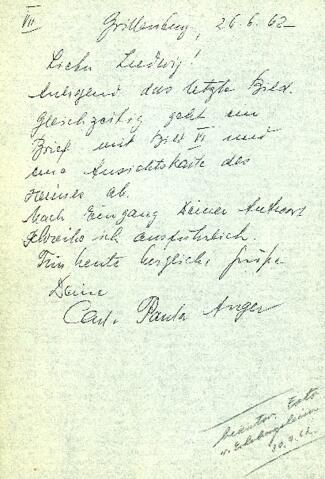 VII
Grillenburg, 26.6.62
Lieber Ludwig!
Anliegend das letzte Bild.
Gleichzeitig geht ein
Brief mit Bild VI und
eine Ansichtskarte des
Heimes ab.
Nach Eingang Deiner Antwort
schreibe ich ausführlich.
Für heute herzliche Grüße
Deine
Carl. Paula Anger
beantw. Foto
v. Erholungsheim